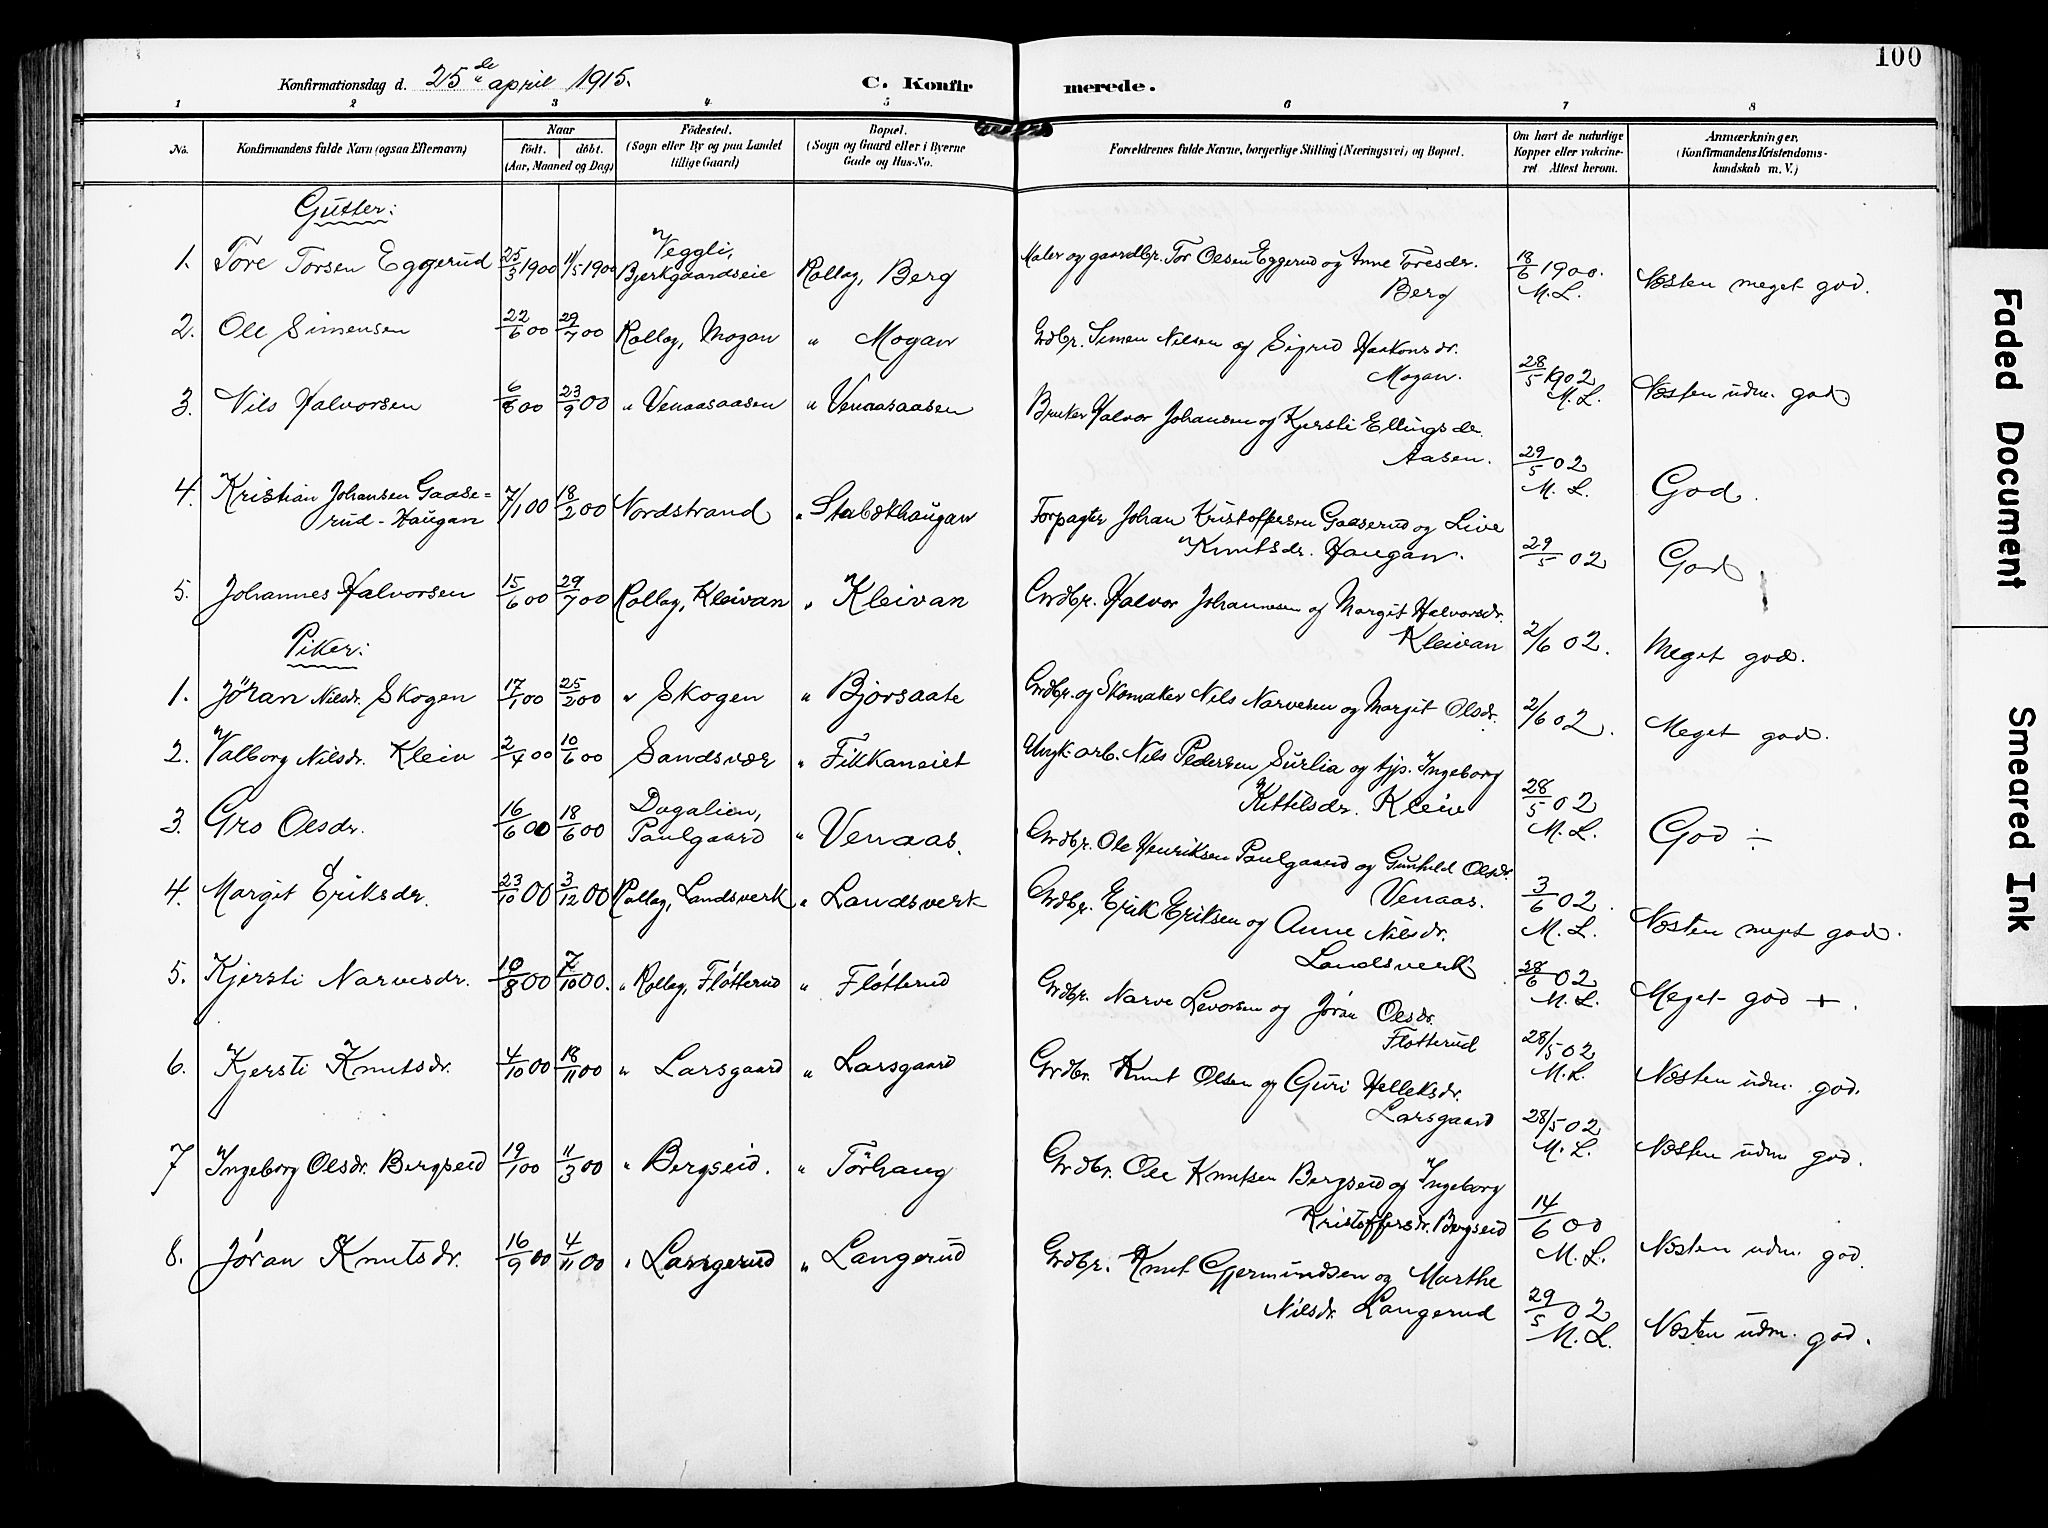 100
Konfirmationsdag d. 25de april 1915.
C. Konfirmerede.
1 2 3 4 5 6 7 8
No.
Konfirmandens fulde Navn (ogsaa Efternavn)
Naar
født. døbt.
(Aar, Maaned og Dag)
Fødested.
(Sogn eller By og paa Landet
tillige Gaard)
Bopæl.
(Sogn og Gaard eller i Byerne
Gade og Hus-No.
Forældrenes fulde Navne, borgerlige Stilling (Næringsvei) og Bopæl.
Om havt de naturlige
Kopper eller vakcine-
ret Attest herom.
Anmærkninger.
(Konfirmandens Kristendoms-
kundskab m. V.)
Gutter:
1. Tore Torsen Eggerud 25/3 1900 11/5 1900 Veggli, Bjerkgaardseie Rollag, Berg Maler og gaardbr. Tor Olsen Eggerud og Anne Toresdr.
Berg 18/6 1900. M. L. Næsten meget god.
2. Ole Simensen 22/6 00 29/7 00 Rollag, Mogan " Mogan Grdbr. Simen Nilsen og Sigrid Haakonsdr.
Mogan. 28/5 1902 M. L. Næsten udm. god.
3. Nils Halvorsen 6/8 00 23/9 00 " Venaasaasen " Venaasaasen Bruker Halvor Johansen og Kjersti Ellingsdr.
Aasen. 29/5 02 M. L. God.
4. Kristian Johansen Gaase=
rud-Haugan 7/1 00 18/2 00 Nordstrand " Stabækhaugan Forpagter Johan Kristoffersen Gaaserud og Live
Knutsdr. Haugan. 29/5 02 God
5. Johannes Halvorsen 15/6 00 29/7 00 Rollag, Kleivan " Kleivan Grdbr. Halvor Johannesen og Margit Halvorsdr.
Kleivan 2/6 02. Meget god.
Piker:
1. Jöran Nilsdr. Skogen 17/1 00 25/2 00 " Skogen " Bjørsaate Grdbr. og Skomaker Nils Narvesen og Margit Olsdr. 2/6 02. Meget god.
2. Valborg Nilsdr. Kleiv 2/4 00 10/6 00 Sandsvær " Fikkaneiet Ungk. arb. Nils Pedersen Surlia og tjp. Ingeborg
Kittilsdr. Kleiv 28/5 02 M. L. God ÷
3. Gro Olsdr. 16/6 00 18/6 00 Dagalien, Paulgaard " Venaas. Grdbr. Ole Henriksen Paulgaard og Gunhild Olsdr.
Venaas. 3/6 02. M. L. Næsten meget god.
4. Margit Eriksdr. 23/10 00 3/12 00 Rollag, Landsverk " Landsverk Grdbr. Erik Eriksen og Anne Nilsdr.
Landsverk 28/6 02 M. L. Meget god +.
5. Kjersti Narvesdr. 10/8 00 7/10 00. " Rollag, Fløtterud " Fløtterud Grdbr. Narve Levorsen og Jøran Olsdr.
Fløtterud 28/5 02 M. L. Næsten udm. god.
6. Kjersti Knutsdr. 4/10 00 18/11 00 " Larsgaard " Larsgaard Grdbr. Knut Olsen og Guri Helleksdr.
Larsgaard 28/5 02 M. L. Næsten udm god.
7 Ingeborg Olsdr. Bergseid 19/1 00 11/3 00 " Bergseid. " Törhaug Grdbr. Ole Knutsen Bergseid og Ingeborg
Kristoffersdr. Bergseid 14/6 00 M. L. Næsten udm. god.
8. Jøran Knutsdr. 16/9 00 4/11 00 " Langerud " Langerud Grdbr. Knut Gjermundsen og Marthe
Nilsdr. Langerud 29/5 02 M. L. Næsten udm. god.
Faded Document
Smeared Ink